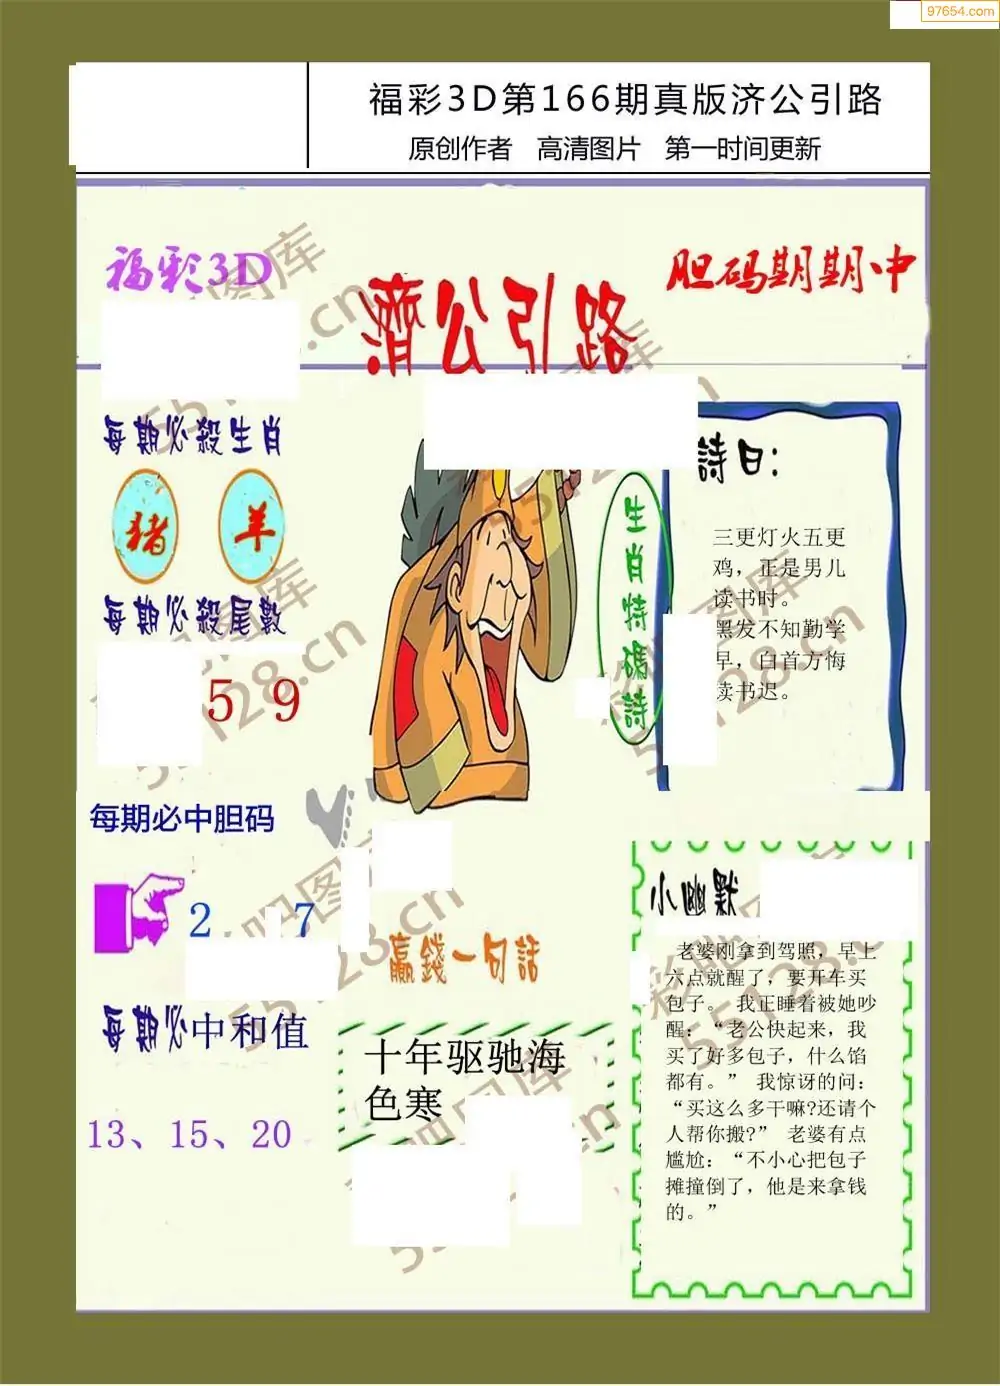 97654.com
福彩3D第166期真版济公引路
原创作者 高清图片 第一时间更新
福彩3D
胆码期期中
濟公引路
每期必殺生肖
猪 羊
每期必殺尾數
5 9
生肖特碼詩
詩曰:
三更灯火五更
鸡，正是男儿
读书时。
黑发不知勤学
早，白首方悔
读书迟。
每期必中胆码
2 7
每期必中和值
13、15、20
贏錢一句話
十年驱驰海
色寒
小幽默
老婆刚拿到驾照，早上
六点就醒了，要开车买
包子。 我正睡着被她吵
醒：“老公快起来，我
买了好多包子，什么馅
都有。” 我惊讶的问：
“买这么多干嘛?还请个
人帮你搬?” 老婆有点
尴尬：“不小心把包子
摊撞倒了，他是来拿钱
的。”
55128.cn